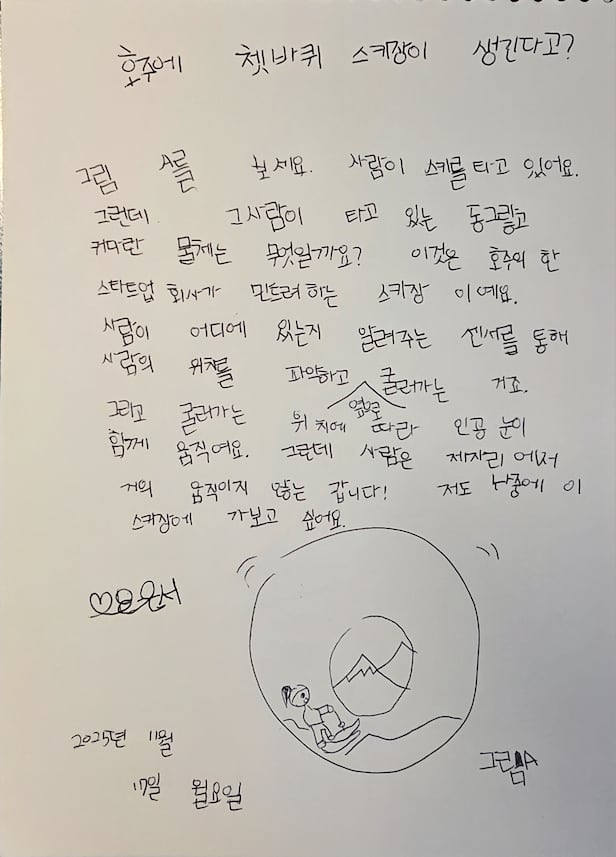 호주에 쳇바퀴 스키장이 생긴다고?
그림 A를 보세요. 사람이 스키를 타고 있어요.
그런데 그사람이 타고 있는 동그랗고
커다란 물체는 무엇일까요? 이것은 호주의 한
스타트업 회사가 만드려하는 스키장 이예요.
사람이 어디에 있는지 알려주는 센서를 통해
사람의 위치를 파악하고 옆으로 굴러가는 거죠.
그리고 굴러가는 위치에 따라 인공 눈이
함께 움직여요. 그런데 사람은 제자리에서
거의 움직이지 않는 갑니다! 저도 나중에 이
스키장에 가보고 싶어요.
윤서
2025년 11월
17일 월요일
그림A